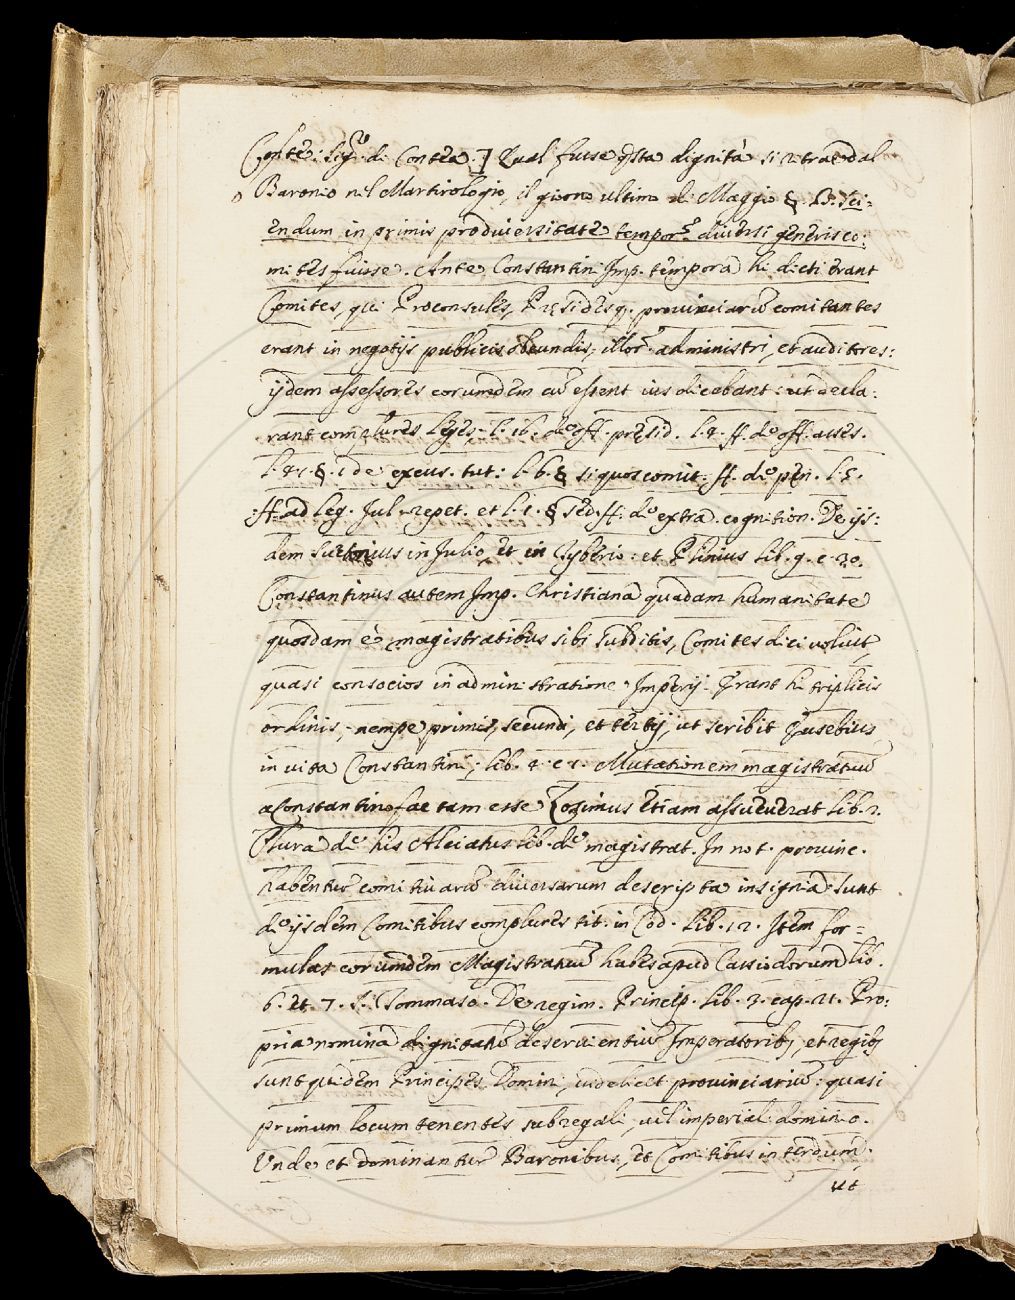 Conte: sigr. di Contea.] Qual fusse qsta dignità si ritrae dal
Baronio nel Martirologio, il giorno ultimo di Maggio §. B. Sci-
endum in primis pro diuersitate tempor. diuersi generis co-
mites fuisse. Ante Constantini Imp. tempora hi dicti erant
Comites, qui Proconsules, Pręsidesq. prouinciarũ comitantes
erant in negotijs publicis obeundis, illor. administri, et auditores:
ijdem assessores eorumdem cũ essent ius dicebant: ut decla-
rant complures leges. l. 16. de off. pręsid. l. 4. ff. de off. asses.
l. 41. §. 1 de excus. tut: l. 6. § si quos comit. ff. de pęn. l. 5.
ff. ad leg. Jul. repet. et l. 1. § sed. ff. de extra. cognition. De ijs-
dem Suetonius in Julio, et in Tyberio: et Plinius lib. 9. c. 30.
Constantinus autem Imp. Christiana quadam humanitate
quosdam è magistratibus sibi subditis, Comites dici voluit,
quasi consocios in administratione Imperij. Erant hi triplicis
ordinis, nempe primi, secundi, et tertij, ut scribit Eusebius
in vita Constantini, lib. 4. c. 1. Mutationem magistratuũ
a Constantino factam esse Zozimus etiam asseuerat lib. 2.
Plura de his Alciatus lib. de magistrat. In not. prouinc.
habentur comitiuarũ diuersarum descripta insignia. Sunt
de ijsdem Comitibus complures tit. in Cod. lib. 12. Item for-
mulas eorumdem Magistratuũ habes apud Cassiodorum lib.
6. et 7. S. Tommaso. De regim. Princip. lib. 3. cap. 21. Pro-
pria nomina dignitatũ deseruientiũ Imperatorib, et regib
sunt quidem Principes Domini, uidelicet prouinciarũ: quasi
primum locum tenentes sub regali, uel imperiali dominio.
Unde et dominantur Baronibus, et Comitibus interdum.
ut